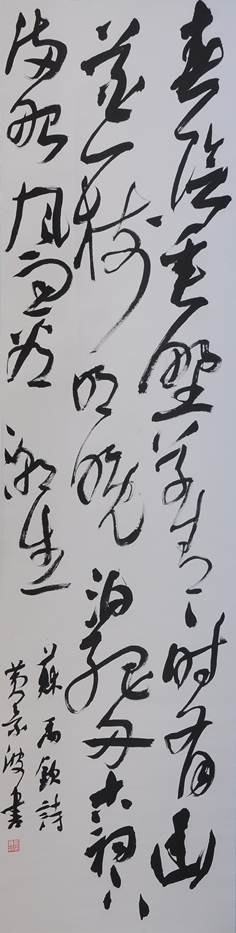 春陰垂野草青〻時有幽
花一樹明晚泊孤舟古祠下
滿川風雨看潮生
蘇舜欽詩
黄景波書